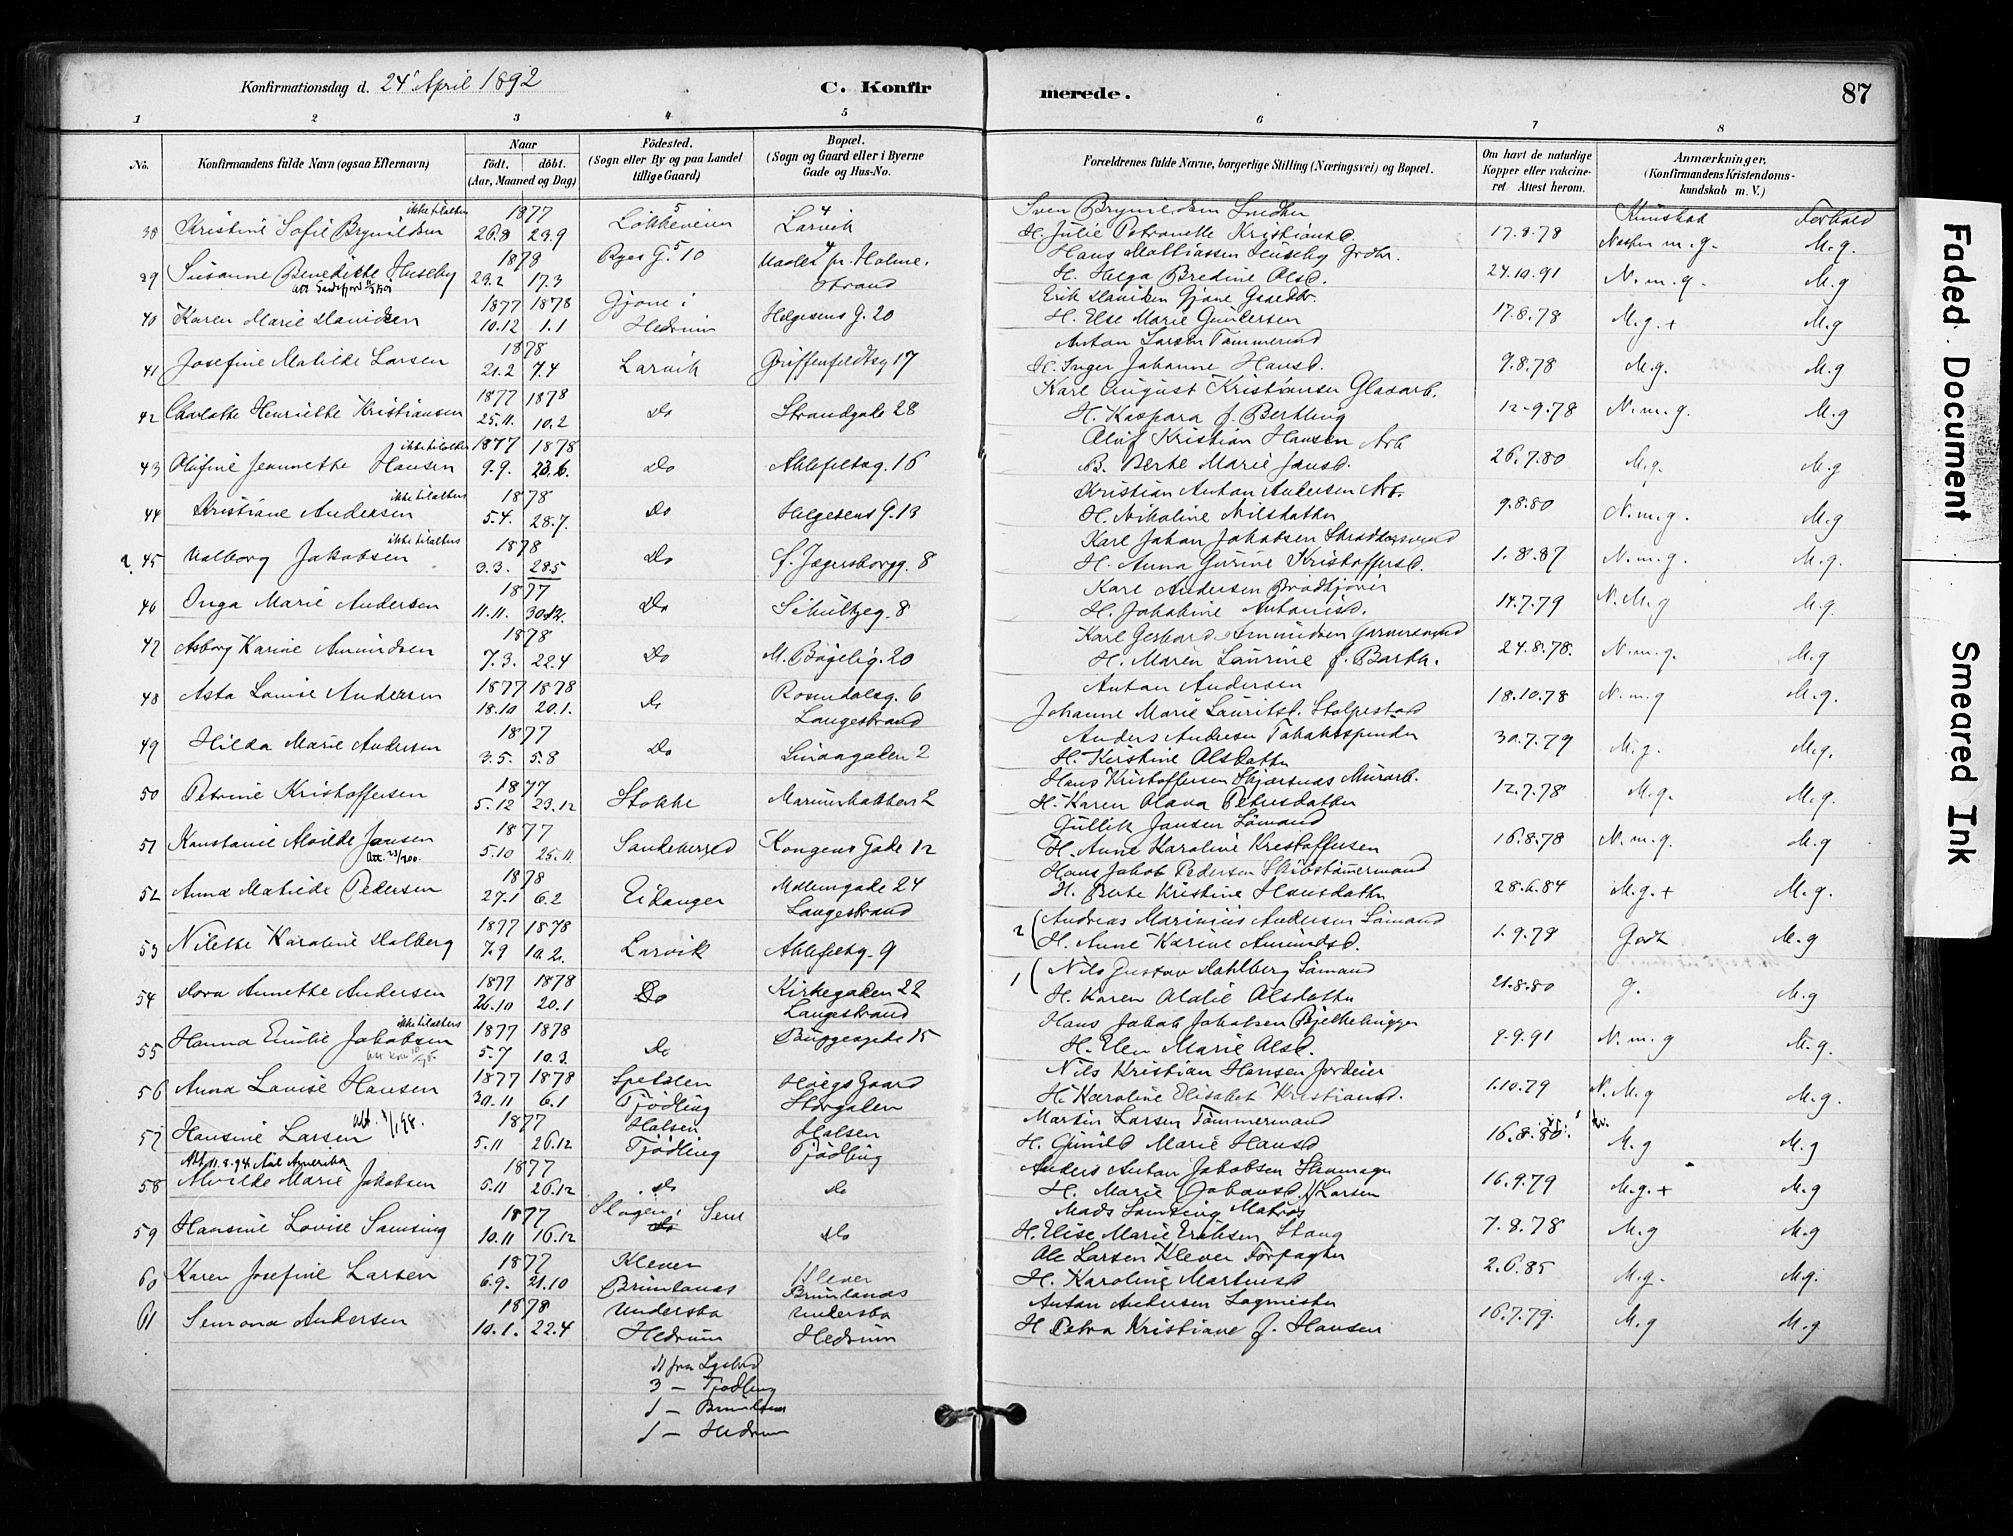 Konfirmationsdag d. 24' April 1892
C. Konfirmerede.
87
1 2 3 4 5 6 7 8
No.
Konfirmandens fulde Navn (ogsaa Efternavn)
Naar
født. døbt.
(Aar, Maaned og Dag)
Fødested.
(Sogn eller By og paa Landet
tillige Gaard)
Bopæl.
(Sogn og Gaard eller i Byerne
Gade og Hus-No.
Forældrenes fulde Navne, borgerlige Stilling (Næringsvei) og Bopæl.
Om havt de naturlige
Kopper eller vakcine-
ret Attest herom.
Anmærkninger.
(Konfirmandens Kristendoms-
kundskab m. V.)
Kunskab Forhold
38 Kristine Sofie Brynildsen 1877 26.8 23.9 Løkkeveien 5 Larvik 4 Sven Brynildsen Smed H. Julie Petronelle Kristiansd. 17.8.78 Næsten m.g. M.g.
39 Susanne Benedikte Huseby 1878 23.2 17.3 Ryes G. 10 Hans Mathiassen Huseby H. Helga Bredine Olsd. 24.10.91 N.m.g. M.g
40 Karen Marie Davidsen 1877 1878 10.12 1.1 Gjone i Hedrum Helgesens G. 20 Erik Davidsen Gjone H. Else Marie Gundersen 17.8.78 M.g.+ M.g
41 Josefine Matilde Larsen 1878 21.2 7.4 Larvik Griffenfeldtsg 17 Anton Larsen Tømmermd H. Inger Johanne Hansd. 9.8.78 M.g. M.g
42 Charlotte Henriette Kristiansen 1877 1878 25.11. 10.2 Do Strandgade 28 Karl August Kristiansen Glasarb. H. Kaspara f. Bertling 12-9.78 N.m.g. M.g
43 Olufine Jeannette Hansen ikke tilalters 1877 1878 9.9. 23.6. Do Ahlefeltsg. 16 Oluf Kristian Hansen Arb B. Berte Marie Jansd. 26.7.80 M.g. M.g
44 Kristiane Andersen ikke tilalters 1878 5.4. 28.7. Do Helgesens G. 13 Kristian Anton Andersen Arb. H. Nikoline Nilsdatter 9.8.80 N.m.g. M.g
45 Valborg Jakobsen ikke tilalters 1878 3.3. 28.5 Do f. Jegersborgg. 8 Karl Johan Jakobsen Skræddersvend H. Anna Gurine Kristoffersd. 1.8.87 N.m.g. M.g.
46 Inga Marie Andersen 1877 11.11. 30.12. Do Schultzeg. 8 Karl Andersen Brødkjører H. Jakobine Antonisd. 14.7.79 N.M.g M.g.
47 Asborg Karine Amundsen 1878 7.3. 22.4 Do M. Bøgelig. 20 Karl Gerhard Amundsen Garversvend H. Maren Laurine f. Barth. 24.8.78. N.m.g. M.g
48 Asta Louise Andersen 1877 1878 18.10 20.1. Do Rosendalsg. 6 Langestrand Anton Andersen Johanne Marie Lauritsd. Stolpestad 18.10.78 N.m.g M.g.
49 Hilda Marie Andersen 1877 3.5. 5.8 Do Lindagaden 2 Anders Andersen Tobakspinder H. Kirstine Olsdatter 30.7.79 M.g. M.g.
50 Petrine Kristoffersen 1877 5.12 23.12 Stokke Marumbakken 2 Hans Kristoffersen Skjærsnes Murarb. H. Karen Olava Petersdatter 12.7.78 M.g. M.g.
51 Konstanse Alvilde Jansen 1877 5.10 25.11 Sandeherred Kongens Gade 12 Gullik Jansen Sømand H. Anne Karoline Kristoffersen 16.8.78 N.m.g. M.g
52 Anna Matilde Pedersen 1878 27.1 6.2 Eidanger Møllergade 24 Langestrand Hans Jakob Pedersen Skibstømmermand H. Berte Kristine Hansdatter 28.6.84 M.g.+ M.g.
53 Nilette Karoline Dalberg 1877 1878 7.9 10.2. Larvik Ahlefeltsg. 9 2 (Andreas Marinius Andersen Sømand H. Anne Karine Amundsd. 1.9.79 Godt M.g
54 Dora Annette Andersen 1877 1878 26.10 20.1 Do Kirkegaden 22 Langestrand 1 (Nils Gustav Dahlberg Sømand H. Karen Matie Olsdatter 21.8.80 g. M.g
55 Hanna Emilie Jakobsen ikke tilalters 1877 1878 5.7 10.3. Do Bøggegade 15 Hans Jakob Jakobsen Bjelkehugger H. Elen Marie Olsd. 9-9.91 N.m.g M.g.
56 Anna Lovise Hansen 1877 1878 30.11 6.1 Spetalen Tjødling Høegs Gaard Storgaten Nils Kristian Hansen Jordeier H. Karoline Elisabet Kristiansd. 1.10.79 N.M.g M.g.
57 Hansine Larsen 1877 5.11 26.12 Halsen Tjødling Halsen Tjødling Martin Larsen Tømmermand H. Gunild Marie Hansd 16.8.80. M.g M.g
58 Att. 11.8.94 til Amerika Alvilde Marie Jakobsen 1877 5.11 26.12 Do Do Anders Anton Jakobsen H. Marie (Johansd.) Larsen 16.9.79 M.g.+ M.g
59 Hansine Lovise Samsing 1877 10.11 16.12 Slagen i Sem Do Mads Samsing Matros H. Elise Marie Eriksen Stang 7.8.78 M.g M.g
60 Karen Josefine Larsen 1877 6.9. 21.10 Kleven Brunlanes Klever Brunlanes Ole Larsen Klever Forpagter H. Karoline Martinsd 2.6.85 M.g. M.g.
61 Semona Andersen 1878 10.1. 22.4 Undersbo Hedrum Undersbo Hedrum Anton Andersen Lagmester H. Petra Kristiane f. Hansen 16.7.79. M.g M.g
3 — Tjødling
1 — Brunlanes
1 — Hedrum
Faded Document
Smeared Ink